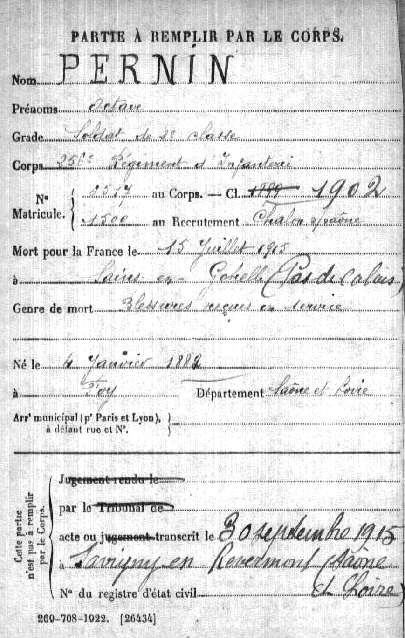 PARTIE À REMPLIR PAR LE CORPS.
Nom PERNIN
Prénoms Octave
Grade Soldat de 2e classe
Corps 256e Régiment d'Infanterie
N° Matricule. { 2517 au Corps. — Cl. 1889 1902
1500 au Recrutement Chalon s/Saône
Mort pour la France le 15 Juillet 1915
à Sains en Gohelle (Pas de Calais)
Genre de mort Blessures reçues en service
Né le 4 Janvier 1882
à Département Saône et Loire
Arrt municipal (pr Paris et Lyon), à défaut rue et N°. {
Cette partie n'est pas à remplir par le Corps.
Jugement rendu le
par le Tribunal de
acte ou jugement transcrit le 30 septembre 1915
à Savigny en Revermont (Saône
et Loire)
N° du registre d'état civil
269-708-1922. [26434]